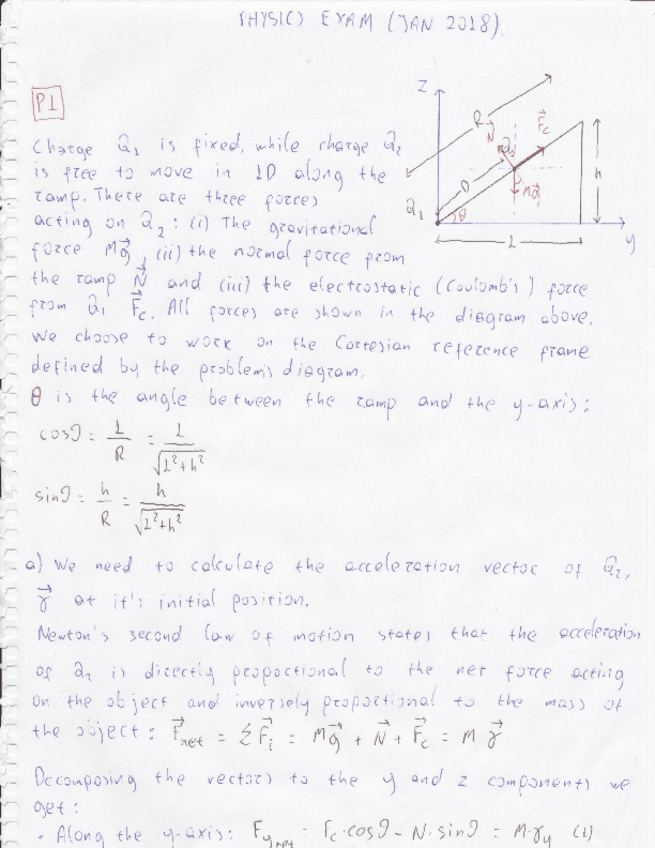 PHYSICS EXAM (JAN 2018)
P1
Charge Q₁ is fixed, while charge Q₂
is free to move in 1D along the
ramp. There are three forces
acting on Q₂: (i) The gravitational
force Mg⃗, (ii) the normal force from
the ramp N⃗ and (iii) the electrostatic (Coulomb's) force
from Q₁ F⃗c. All forces are shown in the diagram above.
We choose to work on the Cartesian reference frame
defined by the problem's diagram.
θ is the angle between the ramp and the y-axis:
cosθ = L/R = L/√(L²+h²)
sinθ = h/R = h/√(L²+h²)
a) We need to calculate the acceleration vector of Q₂,
γ⃗ at it's initial position.
Newton's second law of motion states that the acceleration
of Q₂ is directly proportional to the net force acting
on the object and inversely proportional to the mass of
the object: F⃗net = ΣF⃗i = Mg⃗ + N⃗ + F⃗c = M·γ⃗
Decomposing the vectors to the y and z components we
get:
• Along the y-axis: Fy net = Fc·cosθ - N·sinθ = M·γy (1)
z
R
N⃗
Q₂
F⃗c
D
Mg⃗
h
Q₁
θ
L
y